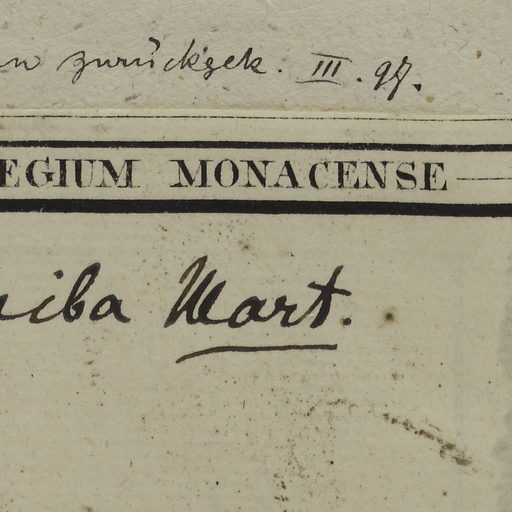 zurückgek. III. 97.
EGIUM MONACENSE
iba Mart.